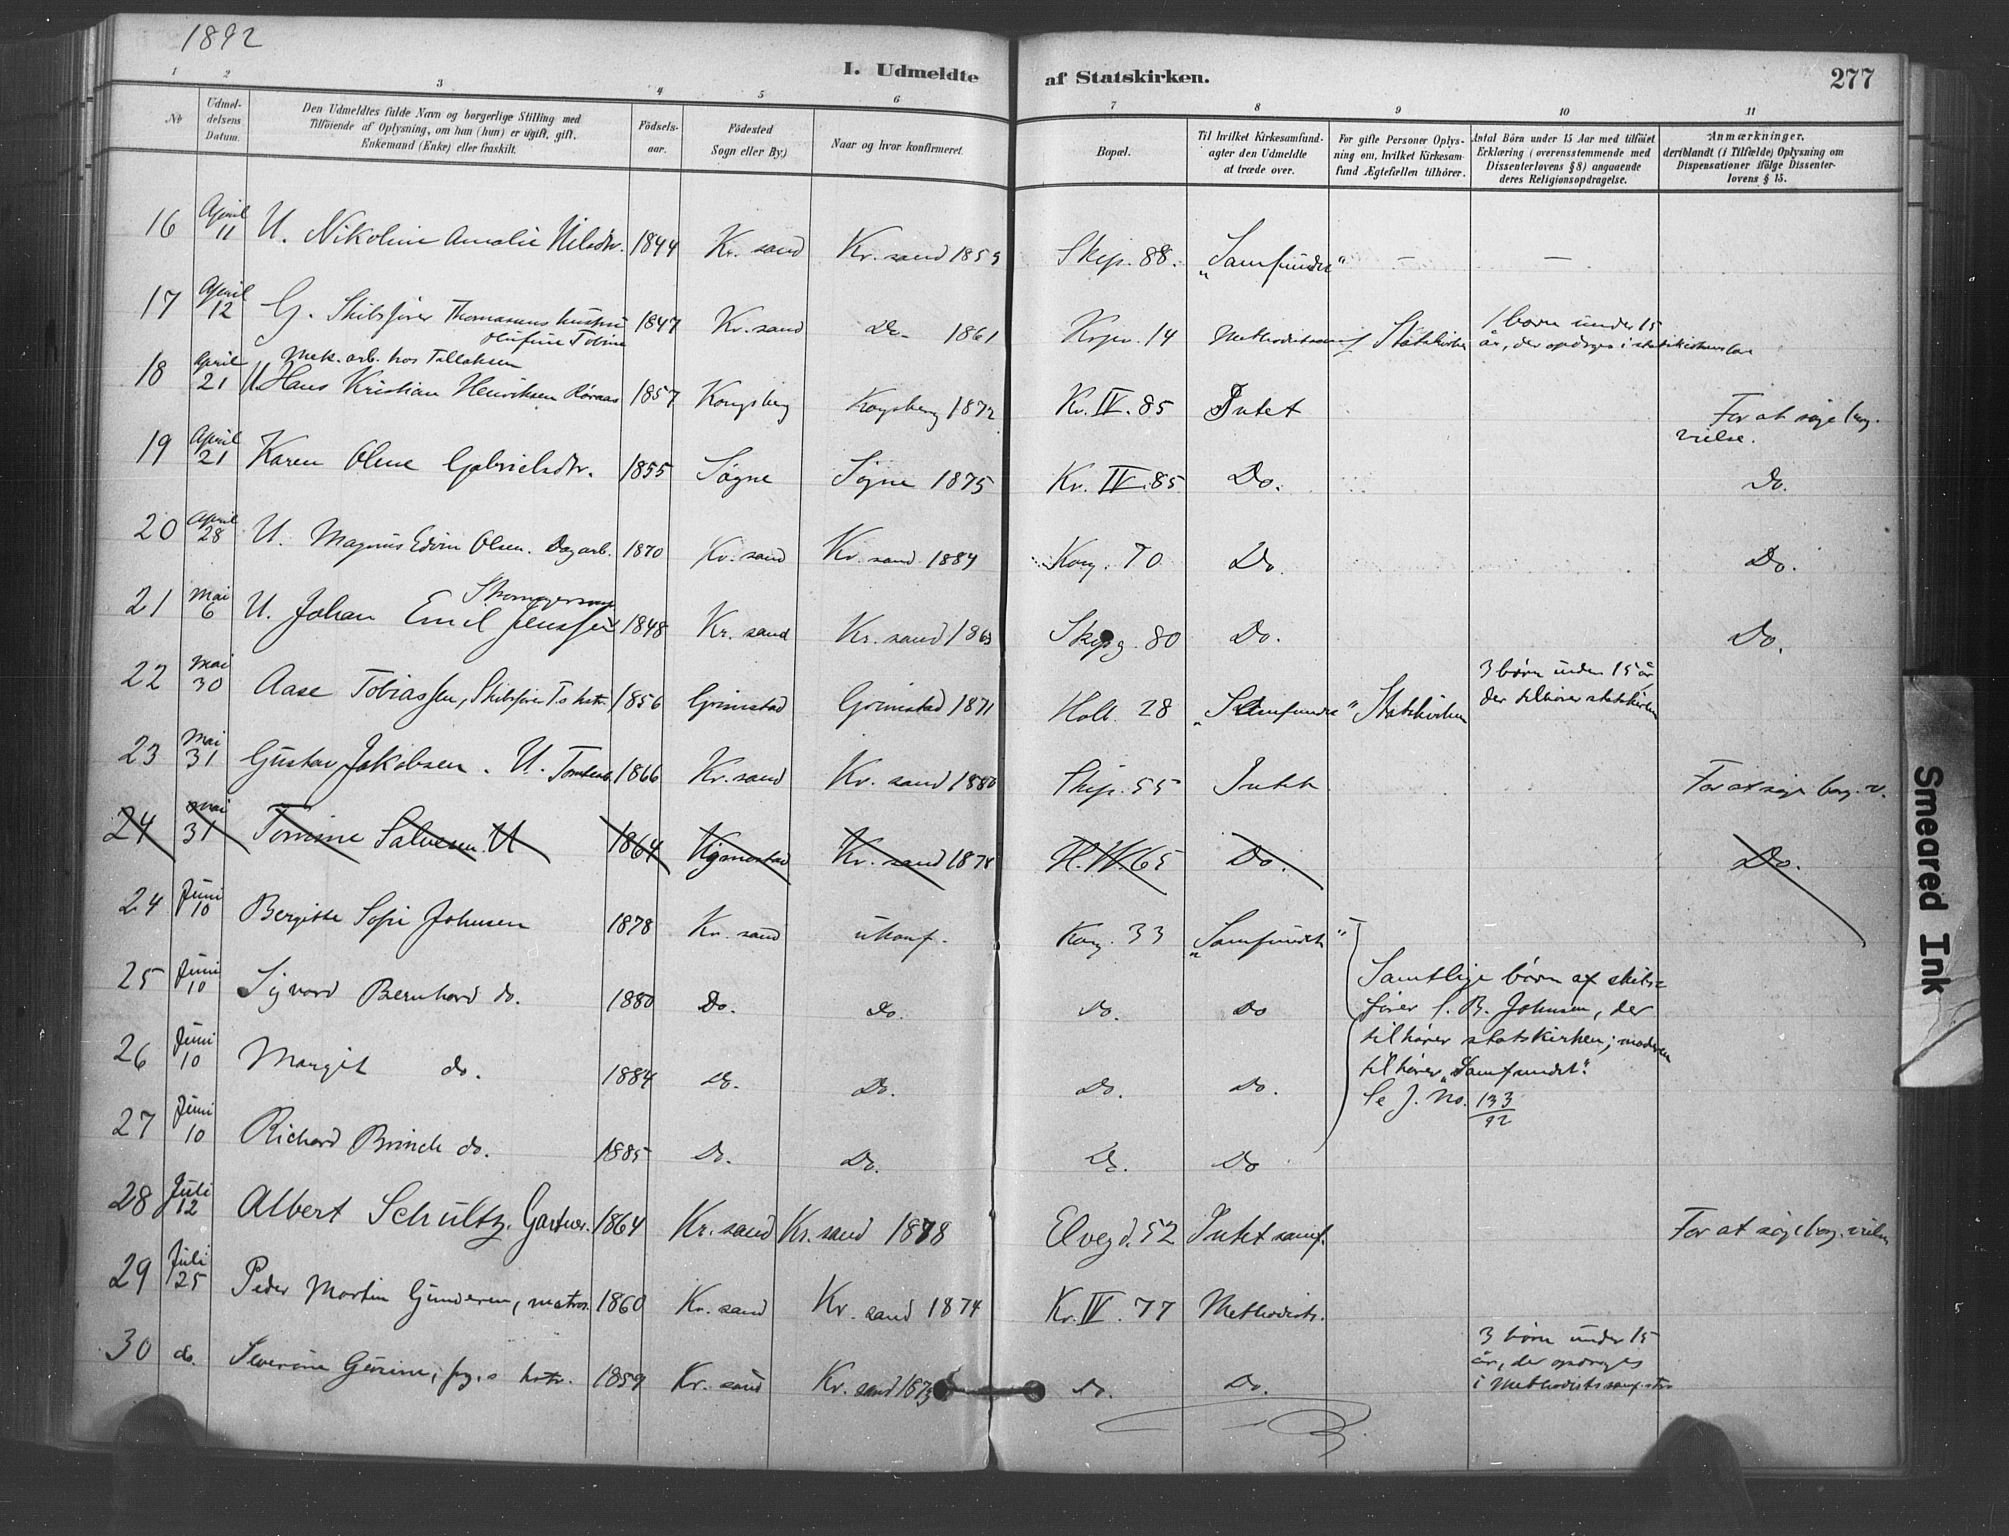 1892
I. Udmeldte af Statskirken.
277
1 2 3 4 5 6 7 8 9 10 11
No
Udmeldelsens Datum.
Den Udmeldtes fulde Navn og borgerlige Stilling med
Tilföiende af Oplysning, om han (hun) er ugift, gift,
Enkemand (Enke) eller fraskilt.
Födselsaar.
Födested
Sogn eller By.)
Naar og hvor konfirmeret.
Bopæl.
Til hvilket Kirkesamfund agter den Udmeldte at træde over.
For gifte Personer Oplysning om, hvilket Kirkesamfund Ægtefællen tilhörer.
Antal Börn under 15 Aar med tilföiet Erklæring (overensstemmende med Dissenterlovens § 8) angaaende deres Religionsopdragelse.
Anmærkninger,
deriblandt (i Tilfælde) Oplysning om
Dispensationer ifölge Dissenterlovens § 15.
16 April 11 U. Nikoline Amalie Nilsdtr. 1844 Kr. sand Kr. sand 1859 Skip. 88. "Samfundet" – –
17 April 12 G. Skibsfører Thomasens hustru Olufine Tobine 1847 Kr. sand Do. 1861 14 Statskirken 1 barn under 15 år, der opdrages i
18 April 21 Mek. arb. hos Tallaksen
U Hans Kristian Henriksen Røraas 1857 Kongsberg Kongsberg 1872 Kr. IV. 85 Intet For at søge borg. vielse.
19 April 21 Karen Oline Gabrielsdtr. 1855 Søgne Søgne 1875 Kr. IV. 85 Do. Do.
20 April 28 U. Magnus Edvin Olsen. Dagarb. 1870 Kr. sand Kr. sand 1884 Kong. 70 Do. Do.
21 Mai 6 U. Johan Emil Jenssen 1848 Kr. sand Kr. sand 1863 Skipg. 80 Do. Do.
22 Mai 30 Aase Tobiassen, Skibsfører T.s hstr. 1856 Grimstad Grimstad 1871 Holb. 28 "Samfundet" Statskirken 3 børn under 15 år der tilhører statskirken
23 Mai 31 Gustav Jakobsen. U. 1866 Kr. sand Kr. sand 1880 Skip. 55 Intet For at søge borg. v.
24 Mai 31 Tomine Salvesen U 1864 Kr. sand 1878 65 Do. Do.
24 Juni 10 Bergitte Sofie Johnsen 1878 Kr. sand ukonf. Kong. 33 "Samfundet"
25 Juni 10 Sigvard Bernhard do. 1880 Do. Do. Do. Do
26 Juni 10 Margit do. 1884 Do. Do. Do. Do.
27 Juni 10 Richard Brinch do. 1885 Do. Do. Do. Do
Samtlige børn af skibs-
fører C. B. Johnsen, der
tilhører statskirken; moderen
tilhører "Samfundet".
Se J. No. 133/92
28 Juli 12 Albert Schultz. Gartner. 1864 Kr. sand Kr. sand 1878 Elvegd. 52 Intet samf. For at søge borg. vielse
29 Juli 25 Peder Martin Gundersen, matros. 1860 Kr. sand Kr. sand 1874 Kr. IV. 77 Methodists.
30 do. Severine Gurine, frg.s hstr. 1859 Kr. sand Kr. sand 1873 Do. Do. 3 børn under 15 år, der opdrages i Methodistsamf.
Smeared Ink